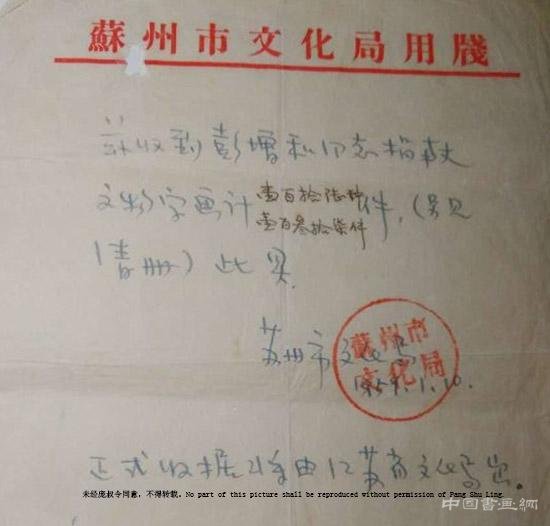 蘇州市文化局用牋
兹收到彭增和同志捐献
文物字画计壹百拾陆种件,(另见
壹百叁拾柒件
清册)此具.
苏州市文化局
蘇州市
文化局
1959.1.10.
正式收据将由江苏省文化局出。
未经庞叔令同意，不得转载。No part of this picture shall be reproduced without permission of Pang Shu Ling.
中国書画網